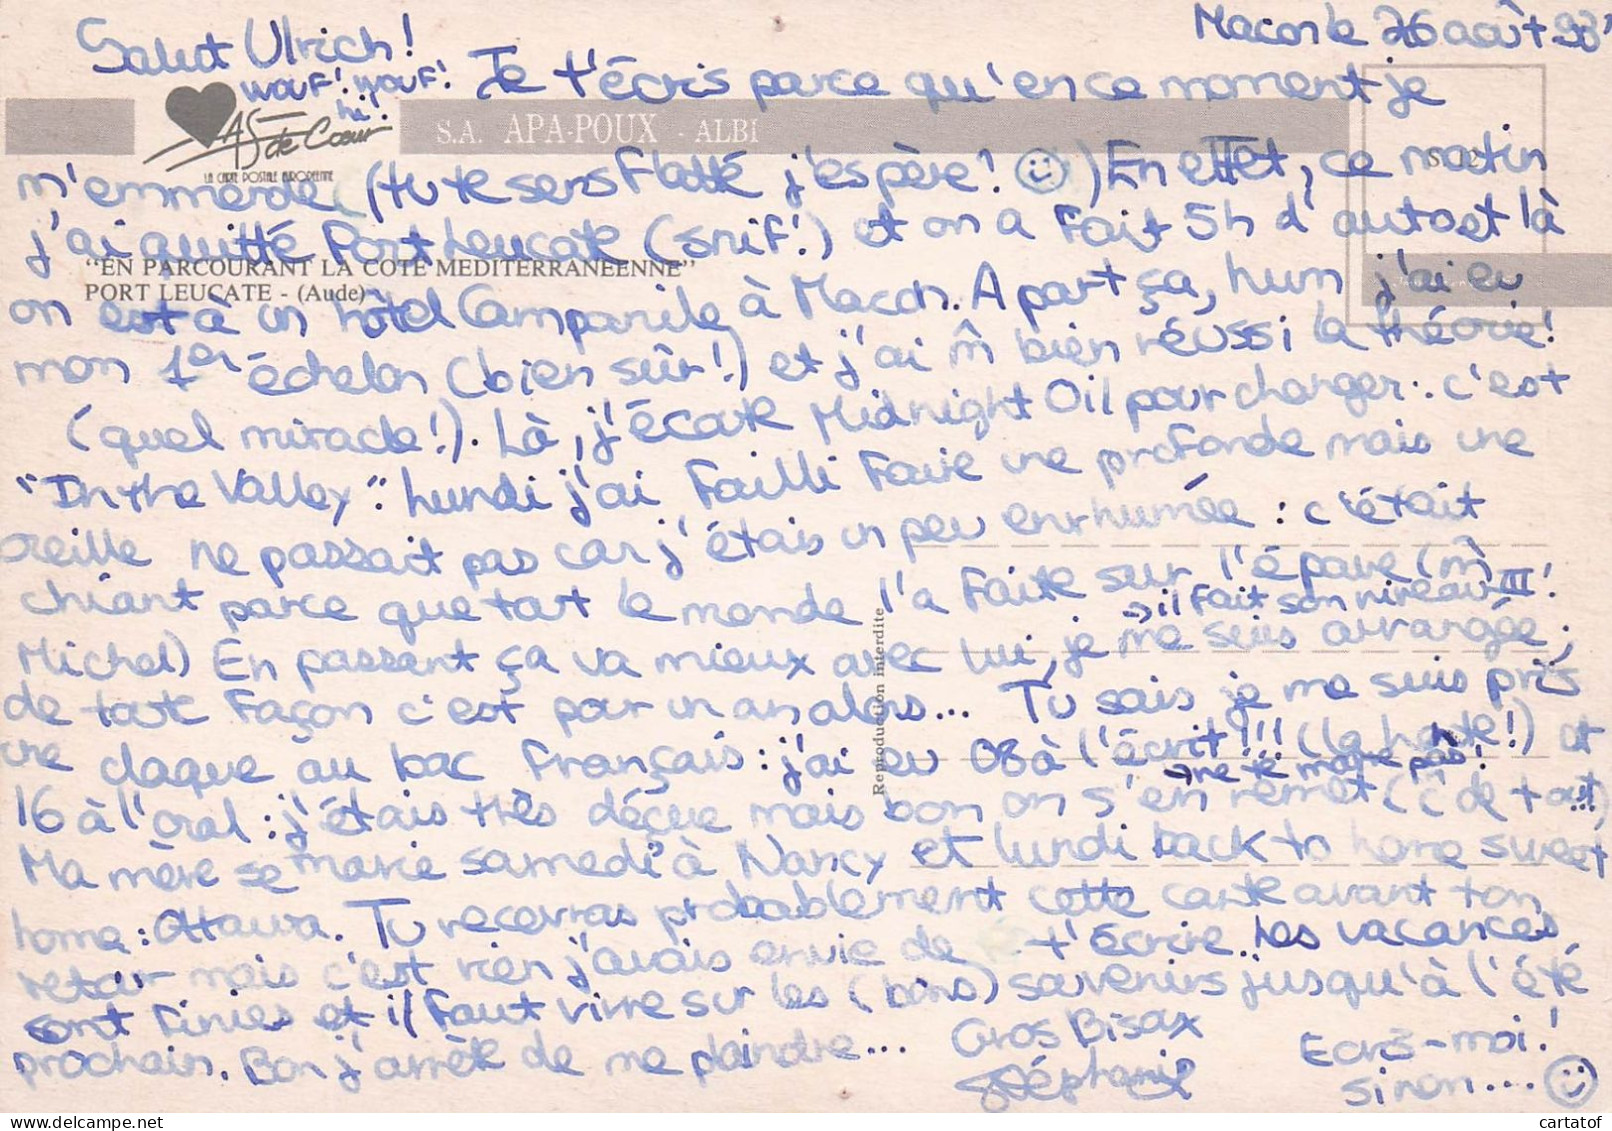 Macon le 26 août 93
Salut Ulrich!
WOUF! WOUF!
hi!
Je t'écris parce qu'en ce moment je
AS de Cœur
LA CARTE POSTALE EUROPEENNE
S.A. APA-POUX - ALBI
m'emmerde (tu te sens flatté j'espère! ☺) En effet, ce matin
j'ai quitté Port Leucate (snif!) et on a fait 5h d'auto et là
"EN PARCOURANT LA COTE MEDITERRANEENNE"
PORT LEUCATE - (Aude)
on est à un hôtel Campanile à Macon. A part ça, hum j'ai eu
mon 1er échelon (bien sûr!) et j'ai m̂ bien réussi la théorie!
(quel miracle!). Là, j'écoute Midnight Oil pour changer: c'est
"In the Valley". Lundi j'ai failli faire une profonde mais une
oreille ne passait pas car j'étais un peu enrhumée: c'était
chiant parce que tout le monde l'a faite sur l'épave (m̂
→ il fait son niveau III!
Michel) En passant ça va mieux avec lui, je me suis arrangée;
de toute façon c'est pour un an alors... Tu sais je me suis pris
une claque au bac français: j'ai eu 08 à l'écrit!!! (la honte!) et
→ ne te moque pas!
16 à l'oral: j'étais très déçue mais bon on s'en remet (ĉ de tout!!)
Ma mère se marie samedi à Nancy et lundi back to home sweet
home: Ottawa. Tu recevras probablement cette carte avant ton
retour mais c'est rien j'avais envie de t'écrire. Les vacances
sont finies et il faut vivre sur les (bons) souvenirs jusqu'à l'été
prochain. Bon j'arrête de me plaindre...
Gros Bisox
Stéphanie
Ecris-moi!
sinon... ☺
Reproduction interdite
cartatof